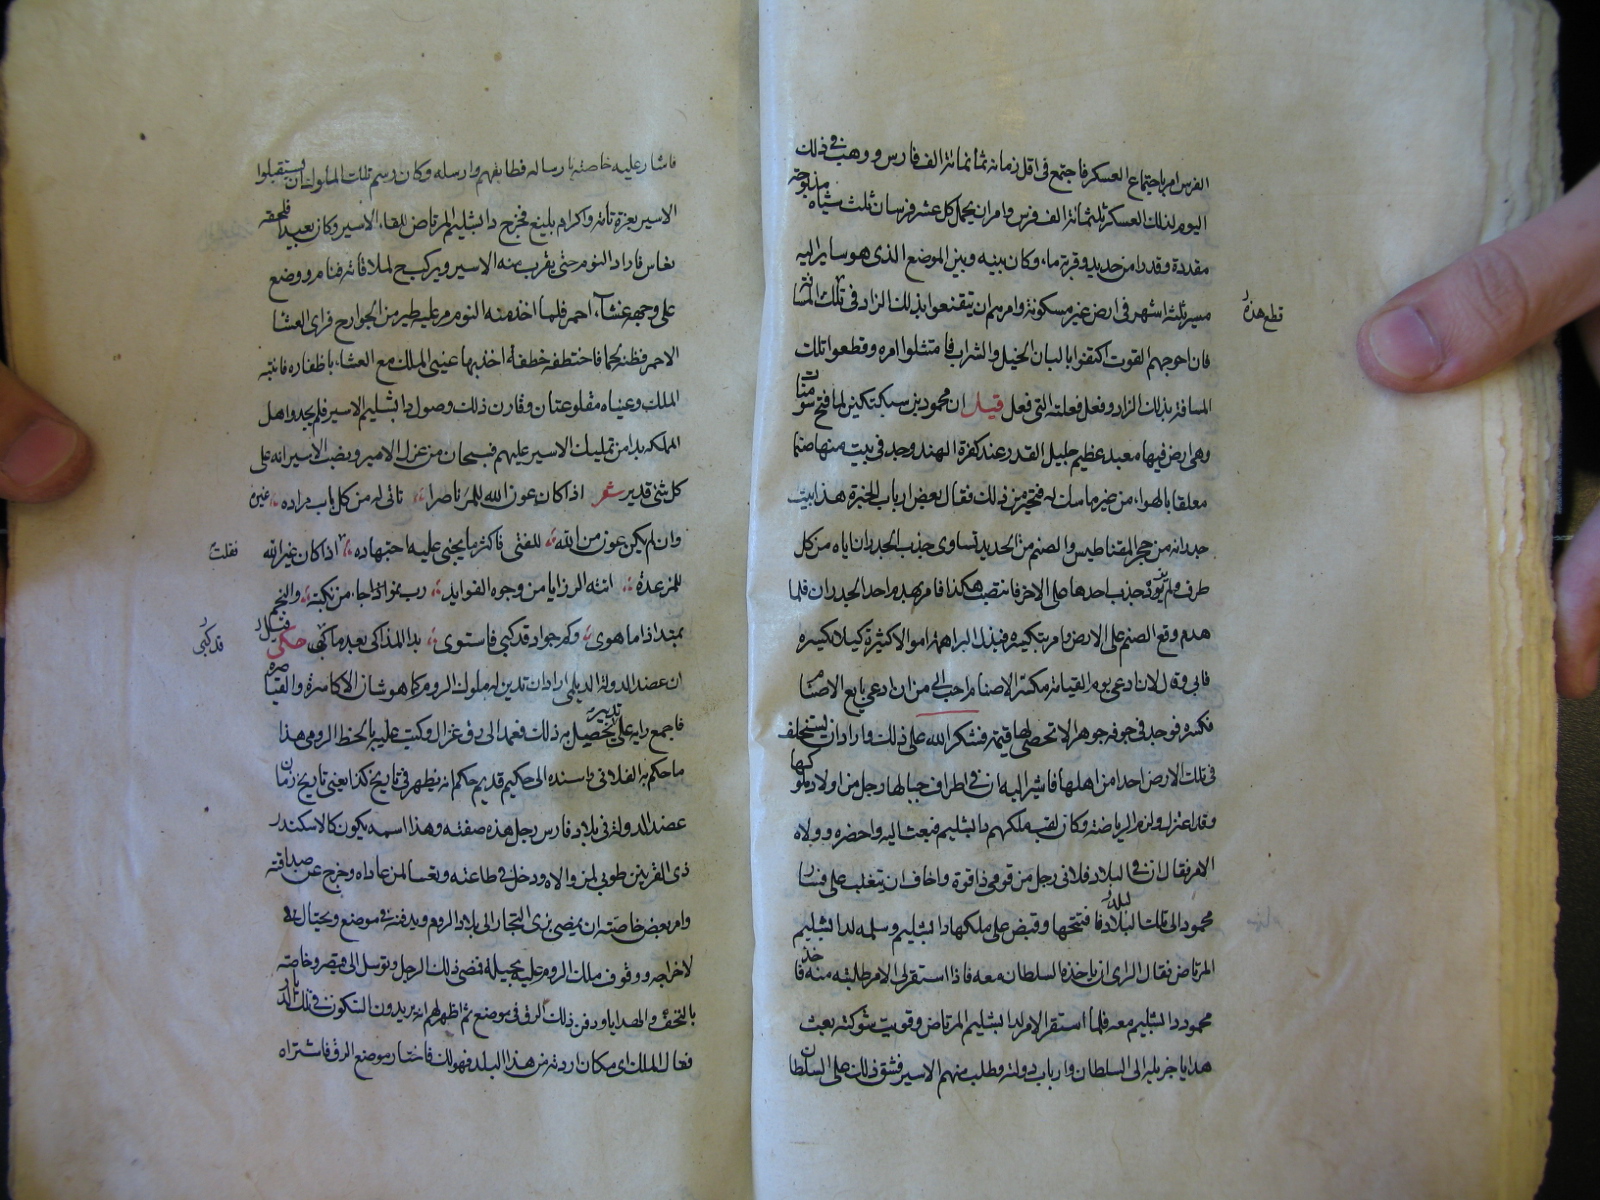 الفرس امر باجتماع العسكر فاجتمع فى اقل زمانه ثمانمائة الف فارس ووهب فى ذلك
اليوم لذلك العسكر ثلثمائة الف فرس وامر ان يحمل كل عشر فرسان ثلث شياه مذبوحة
مقددة وقدرا من حديد وقربة ماء وكان بينه وبين الموضع الذى هو ساير اليه
مسير ثلثة اشهر فى ارض غير مسكونة وامرهم ان يتقنعوا بذلك الزاد فى تلك المسافة
قطع هذه
فان احوجهم القوت اكتفوا بالبان الخيل والشراب فامتثلوا امره وقطعوا تلك
المسافة بذلك الزاد وفعل فعلته التى فعل قيل ان محمود بن سبكتكين لما فتح سومنات
وهى ارض فيها معبد عظيم جليل القدر عند كفرة الهند وجد فى بيت منها صنما
معلقا بالهواء من غير ماسك له فتحير من ذلك فقال بعض ارباب الخبرة هذا بيت
جدرانه من حجر المقناطيس والصنم من الحديد تساوى جذب الجدران اياه من كل
طرف ولم يزد جذب احدها على الاخر فانتصب هكذا فامر بهدم احد الجدران فلما
هدم وقع الصنم على الارض فامر بتكسيره فبذل البراهمة اموالا كثيرة كيلا يكسره
فابى وقال لان ادعى يوم القيامة مكسر الاصنام احب الى من ان ادعى بايع الاصنام
فكسره فوجد فى جوفه جوهر الا تحصى لها قيمة فشكر الله على ذلك فاراد ان يستخلف
فى تلك الارض احدا من اهلها فاشير اليه ان فى اطراف جبالها رجل من اولاد ملوكها
وقد اعتزل ولزم الرياضة وكان لقب ملكهم دابشليم فبعث اليه واحضره وولاه
الامر فقال ان فى البلاد فلانى رجل من قومى ذا قوة واخاف ان يتغلب على فسار
محمود الى تلك البلاد فافتتحها وقبض على ملكها دابشليم وسلمه لدابشليم
المرتاض فقال الراى ان ياخذه السلطان معه فاذا استقر لى الامر طلبته منه فاخذ
محمود دابشليم معه فلما استقر الامر لدابشليم المرتاض وقويت شوكته بعث
هدايا جزيلة الى السلطان وارباب دولته وطلب منهم الاسير فشق ذلك على السلطان
فاشار عليه خاصته بارساله فطابقهم وارسله وكان رسم تلك الملوك ان يستقبلوا
الاسير بعزة تامة واكرام بليغ فخرج دابشليم المرتاض للقاء الاسير وكان بعيدا فلحقه
نعاس فاراد النوم حتى يقرب منه الاسير ويركب لملاقاته فنام ووضع
على وجهه غشاء احمر فلما اخذ منه النوم مر عليه طير من الجوارح فراى الغشا
الاحمر فظنه لحما فاختطفه خطفة اخذ بها عينى الملك مع الغشاء باظفاره فانتبه
الملك وعيناه مقلوعتان وقارن ذلك وصول دابشليم الاسير فلم يجدوا اهل
المملكه بدا من تمليك الاسير عليهم فسبحان من عزل الامير ونصب الاسير انه على
كل شئ قدير شعر اذا كان عون الله للمرء ناصرا تاتى له من كل باب مراده غيره
وان لم يكن عون من الله للفتى فاكثر ما يجنى عليه اجتهاده اذا كان غير الله
للمرء عدة اتته الرزايا من وجوه الفوايد رب نحو اذا جاء من نكبة والنجم
يمتد اذا ما هوى وكم جواد قد كبى فاستوى بدا المذاكى بعد ما قيل حكى
قد كبى
ان عضد الدولة الديلمى اراد ان تدين له ملوك الروم كما هو شان الاكاسرة والقياصره
فاجمع رايه على تدبير يحصل به ذلك فعمد الى رق غزال وكتب عليه بالخط الرومى هذا
ما حكم به الفلانى واسنده الى حكيم قديم حكم انه يظهر فى تاريخ كذا يعنى تاريخ زمان
عضد الدولة فى بلاد فارس رجل هذه صفته وهذا اسمه يكون كالاسكندر
ذى القرنين طوبى لمن والاه ودخل فى طاعته وتعسا لمن عاداه وخرج عن صداقته
وامر بعض خاصته ان يمضى بزى التجار الى بلاد الروم ويدفنه فى موضع ويحتال فى
لاخراجه ووقوف ملك الروم عليه بحيلة فمضى ذلك الرجل وتوسل الى قيصر وخاصته
بالتحف والهدايا ودفن ذلك الرق فى موضع ثم اظهر لهم انه يريد ان التكون فى تلك الديار
فقال الملك اى مكان اردته من هذا البلد فهو لك فاختار موضع الرق فاشتراه